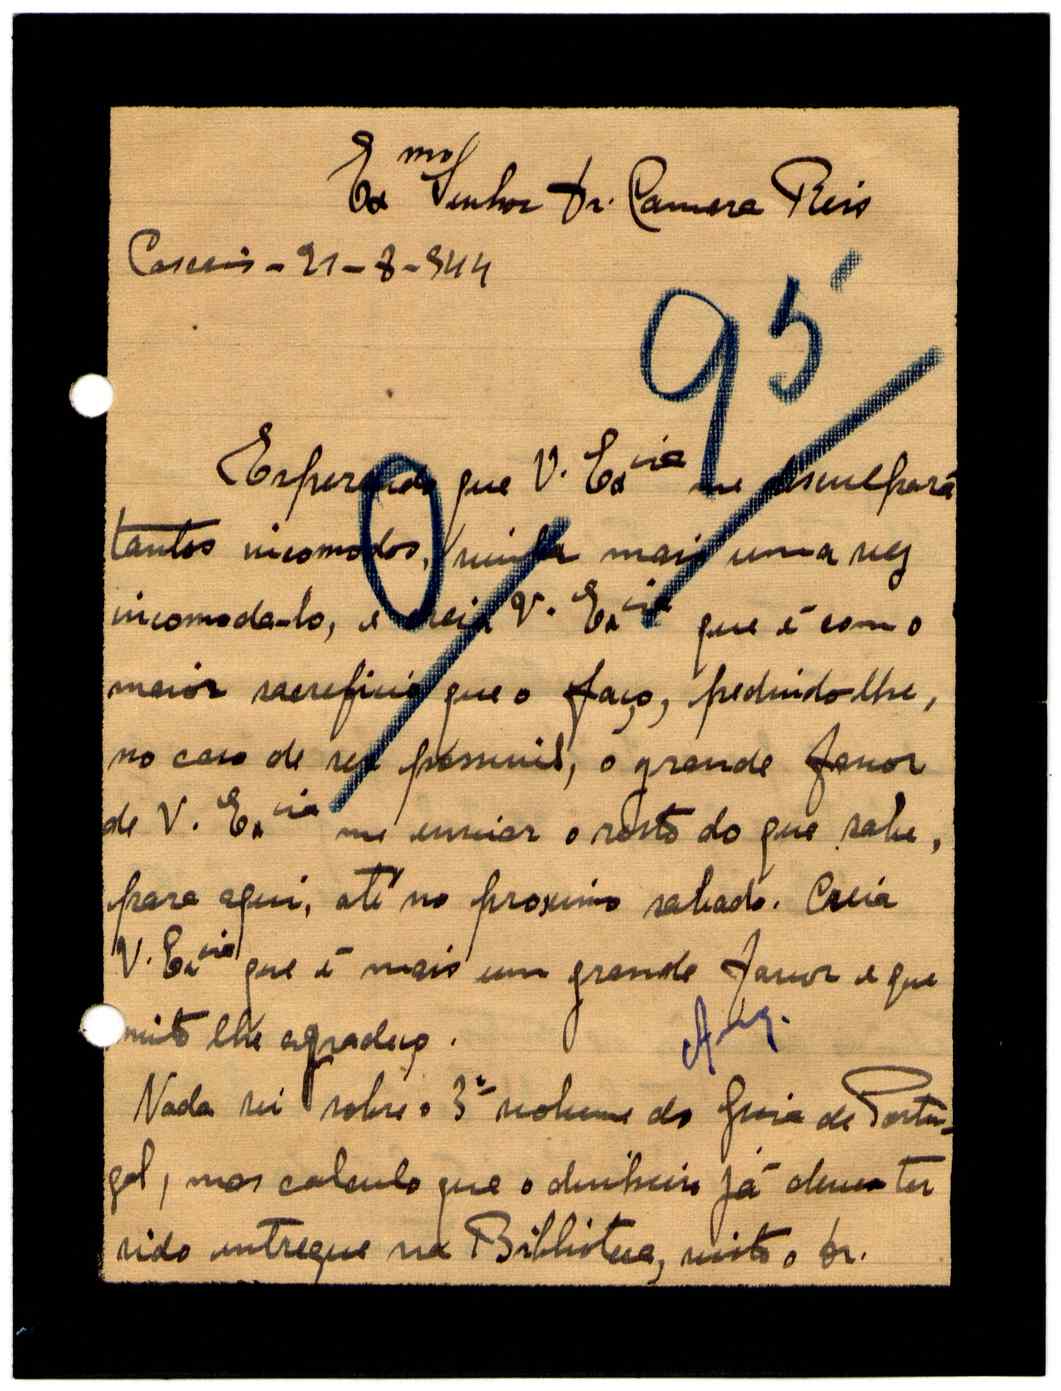 Ex.mo Senhor Dr. Camara Reis
Cascais - 21-8-944
95
Esperando que V. Ex.cia me desculpará
tantos incomodos, venho mais uma vez
incomoda-lo, e creia V. Ex.cia que é com o
maior sacrificio que o faço, pedindo-lhe,
no caso de ser possivel, o grande favor
de V. Ex.cia me enviar o resto do que sabe,
para aqui, até no proximo sabado. Creia
V. Ex.cia que é mais um grande favor e que
muito lhe agradeço.
Nada sei sobre o 3º volume do Guia de Portu-
gal, mas calculo que o dinheiro já deve ter
sido entregue na Biblioteca, visto o Dr.